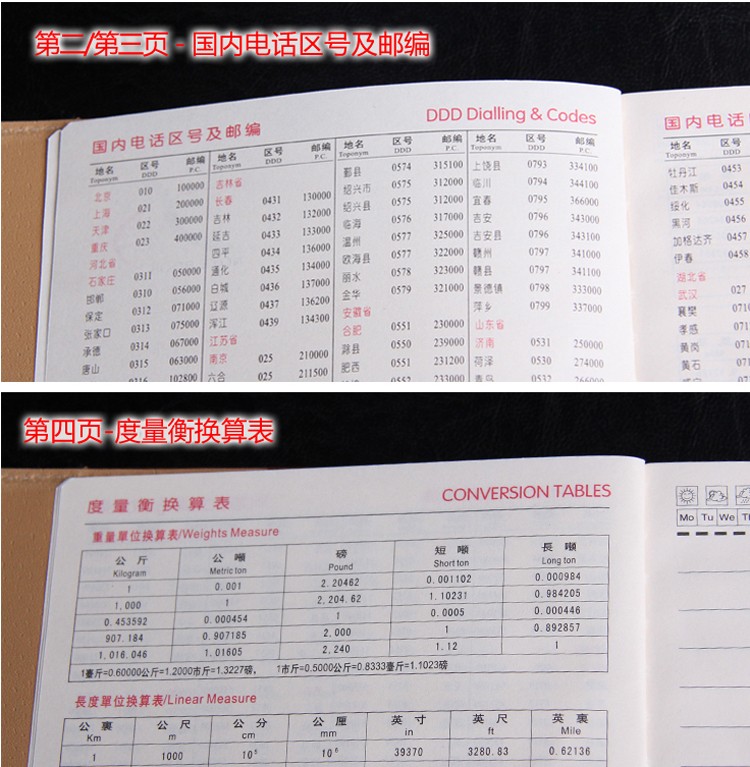 第二/第三页 - 国内电话区号及邮编
国内电话区号及邮编
DDD Dialling & Codes
地名 区号 邮编
Toponym DDD P.C.
北京 010 100000
上海 021 200000
天津 022 300000
重庆 023 400000
河北省
石家庄 0311 050000
邯郸 0310 056000
保定 0312 071000
张家口 0313 075000
承德 0314 067000
唐山 0315 063000
0316 102800
地名 区号 邮编
Toponym DDD P.C.
吉林省
长春 0431 130000
吉林 0432 132000
延吉 0433 133000
四平 0434 136000
通化 0435 134000
白城 0436 137000
辽源 0437 136200
浑江 0439 134300
江苏省
南京 025 210000
六合 025 211500
地名 区号 邮编
Toponym DDD P.C.
鄞县 0574 315100
绍兴市 0575 312000
绍兴县 0575 312000
临海 0576 317000
温州 0577 325000
瓯海县 0577 322000
丽水 0578 323000
金华 0579 321000
安徽省
合肥 0551 230000
滁县 0550 239000
肥西 0551 231200
0552 233000
地名 区号 邮编
Toponym DDD P.C.
上饶县 0793 334100
临川 0794 344100
宜春 0795 366000
吉安 0796 343000
吉安县 0796 343100
赣州 0797 341000
赣县 0797 341100
景德镇 0798 333000
萍乡 0799 337000
山东省
济南 0531 250000
荷泽 0530 274000
青岛 0532 266000
国内电话
地名 区号
Toponym DDD
牡丹江 0453
佳木斯 0454
绥化 0455
黑河 0456
加格达齐 0457
伊春 0458
湖北省
武汉 027
襄樊 0710
孝感 071
黄岗 071
黄石 071
第四页-度量衡换算表
度量衡换算表
CONVERSION TABLES
重量單位換算表/Weights Measure
公斤 公噸 磅 短噸 長噸
Kilogram Metric ton Pound Short ton Long ton
1 0.001 2.20462 0.001102 0.000984
1,000 1 2,204.62 1.10231 0.984205
0.453592 0.000454 1 0.0005 0.000446
907.184 0.907185 2,000 1 0.892857
1,016.046 1.01605 2,240 1.12 1
1臺斤=0.60000公斤=1.2000市斤=1.3227磅, 1市斤=0.5000公斤=0.8333臺斤=1.1023磅
長度單位換算表/Linear Measure
公裏 公尺 公分 公厘 英寸 英尺 英裏
Km m cm mm in ft Mile
1 1000 10⁵ 10⁻⁶ 39370 3280.83 0.62136
Mo Tu We Th